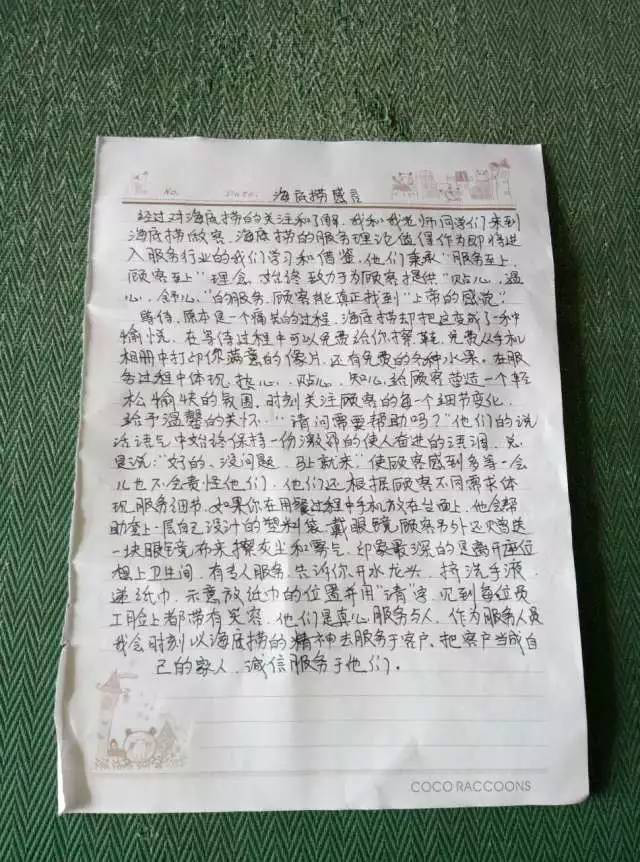 No. Date: 海底捞感言
经过对海底捞的关注和了解,我和我老师同学们来到
海底捞做客,海底捞的服务理论值得作为即将进
入服务行业的我们学习和借鉴,他们秉承“服务至上,
顾客至上”理念,始终致力于为顾客提供“贴心,温
心,舒心”的服务,顾客能真正找到“上帝的感觉”
等待,原本是一个痛苦的过程,海底捞却把这变成了一种
愉悦,在等待过程中可以免费给你擦鞋,免费从手机
相册中打印你满意的像片,还有免费的各种水果。在服
务过程中体现,热心,贴心,知心,给顾客营造一个轻
松愉快的氛围,时刻关注顾客的每一个细节变化,
给予温馨的关怀…“请问需要帮助吗?”他们的说
话语气中始终保持一份激昂的使人奋进的语调,总
是说:“好的、没问题,马上就来”使顾客感到多等一会
儿也不会责怪他们,他们还根据顾客不同需求体
现服务细节,如果你在用餐过程中手机放在台面上,他会帮
助套上一层自己设计的塑料袋,戴眼镜顾客另外还赠送
一块眼镜布来擦灰尘和雾气,印象最深的是离开座位
想上卫生间,有专人服务,告诉你开水龙头,挤洗手液,
递纸巾,示意放纸巾的位置并用“请”字,见到每位员
工脸上都带有笑容,他们是真心服务与人,作为服务人员
我会时刻以海底捞的精神去服务于客户,把客户当成自
己的家人,诚信服务于他们。
COCO RACCOONS